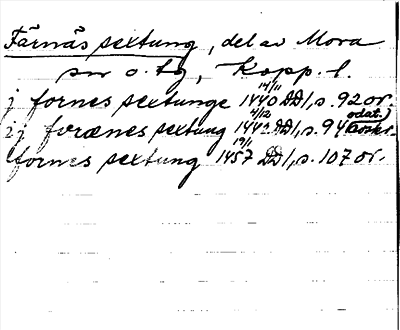 Färnäs sextung, del av Mora
sn o. tg, Kopp. l.
j fornes sextunge 14/11 1440 DD 1, s. 92 or.
i j forænes sextung 4/12 144 DD 1, s. 94 odat.) avskr.
fornes sextung 19/1 1457 DD 1, s. 107 or.